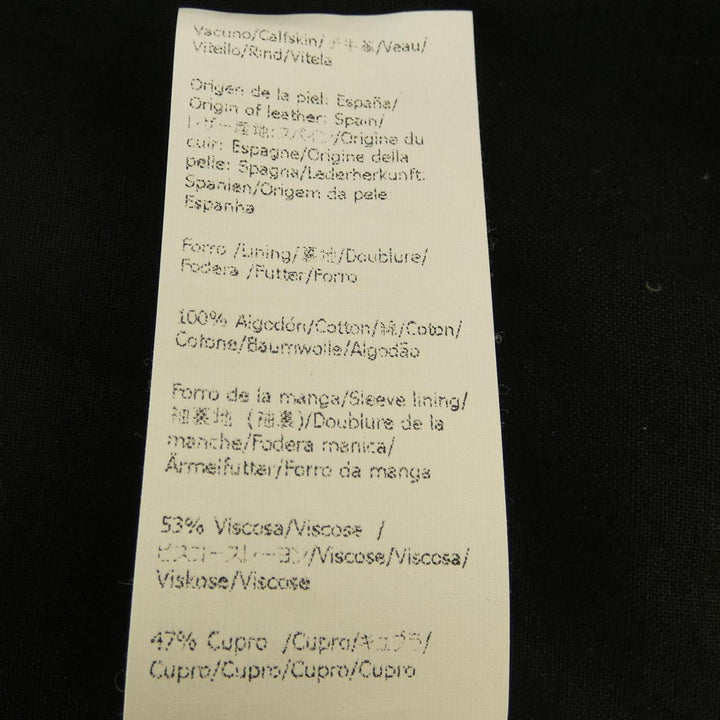 Vacuno/Calfskin/子牛革/Veau/
Vitello/Rind/Vitela
Origen de la piel: España/
Origin of leather: Spain/
レザー産地:スペイン/Origine du
cuir: Espagne/Origine della
pelle: Spagna/Lederherkunft:
Spanien/Origem da pele
Espanha
Forro /Lining/裏地/Doublure/
Fodera /Futter/Forro
100% Algodón/Cotton/綿/Coton/
Cotone/Baumwolle/Algodão
Forro de la manga/Sleeve lining/
袖裏地 (袖裏)/Doublure de la
manche/Fodera manica/
Ärmelfutter/Forro da manga
53% Viscosa/Viscose /
ビスコースレーヨン/Viscose/Viscosa/
Viskose/Viscose
47% Cupro /Cupro/キュプラ/
Cupro/Cupro/Cupro/Cupro